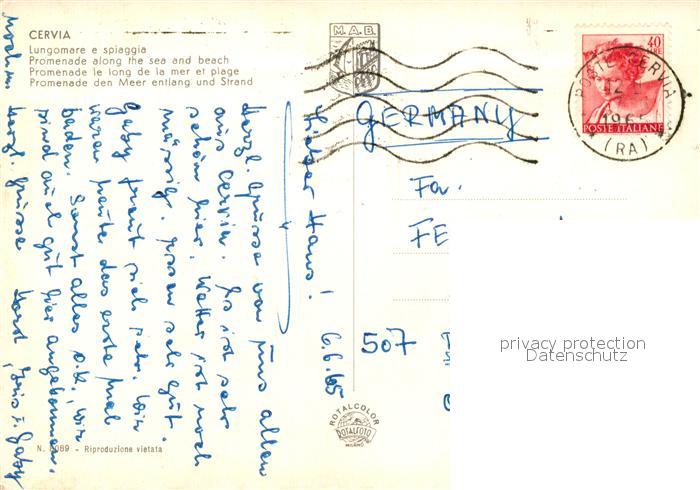 CERVIA
Lungomare e spiaggia
Promenade along the sea and beach
Promenade le long de la mer et plage
Promenade den Meer entlang und Strand
M.A.B.
40
LIRE
POSTE ITALIANE
CERVIA
196
(RA)
GERMANY
Fa.
FE
507
privacy protection
Datenschutz
6.6.65
Lieber Hans!
Herzl. Grüsse von uns allen
aus Cervia. Es ist sehr
schön hier. Wetter ist noch
mässig. Essen sehr gut.
Gaby freut sich sehr. Wir
waren heute das erste mal
baden. Sonst alles o.k., wir
sind auch gut hier angekommen.
Nochm
herzl. Grüsse Horst, Iris u. Gaby
ROTALCOLOR
ROTALFOTO
MILANO
N. 6089 - Riproduzione vietata